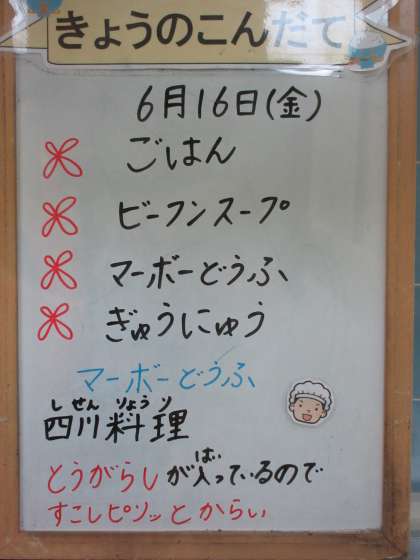 きょうのこんだて
6月16日(金)
ごはん
ビーフンスープ
マーボーどうふ
ぎゅうにゅう
マーボーどうふ
しせんりょうり
四川料理
はい
とうがらしが入っているので
すこしピリッとからい